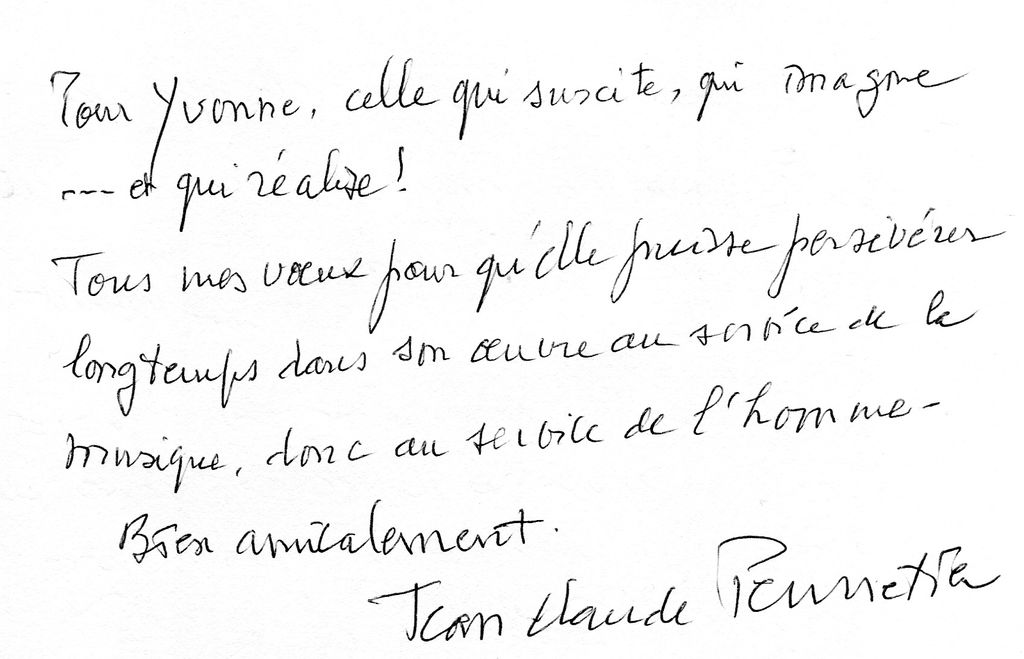 Pour Yvonne, celle qui suscite, qui imagine
---- et qui réalise !
Tous mes vœux pour qu'elle puisse persévérer
longtemps dans son œuvre au service de la
musique, donc au service de l'homme -
Bien amicalement.
Jean Claude Pennetier